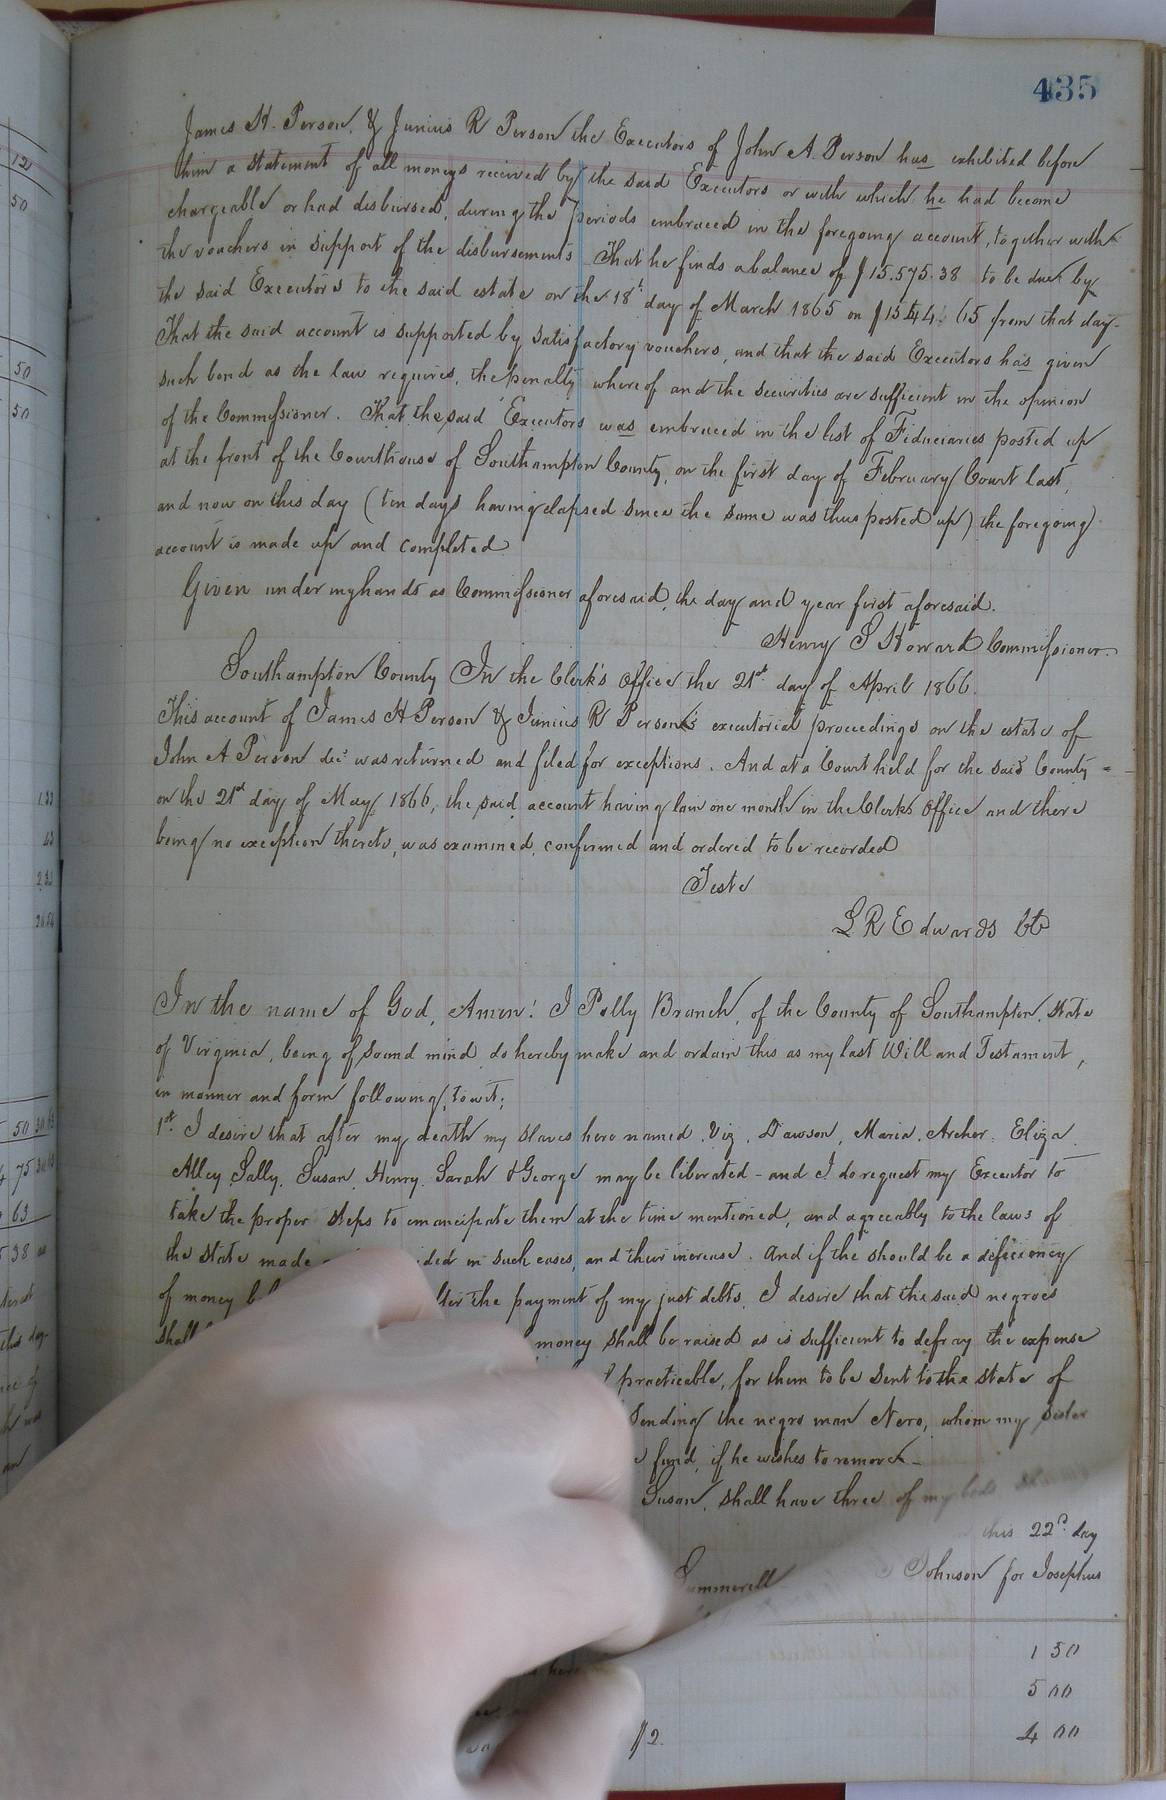 435
James H. Person, & Junius R Person the Executors of John A. Person has exhibited before
him a statement of all moneys received by the said Executors or with which he had become
chargeable or had disbursed, during the periods embraced in the foregoing account, together with
the vouchers in support of the disbursements That he finds a balance of $15.575.38 to be due by
the said Executors to the said estate on the 18t day of March 1865 on $1544. from that day-
That the said account is supported by satisfactory vouchers, and that the said Executors has given
such bond as the law requires, the penalty whereof and the securities are sufficient in the opinion
of the Commissioner. That the said Executors was embraced in the list of Fiduciaries posted up
at the front of the Courthouse of Southampton County, on the first day of February Court last,
and now on this day (ten days having elapsed since the same was thus posted up) the foregoing
account is made up and completed
Given under my hands as Commissioner aforesaid, the day and year first aforesaid.
Henry S Howard Commissioner.
Southampton County In the Clerk's Office the 21st day of April 1866.
This account of James H Person & Junius R Person's executorial proceedings on the estate of
John A Person decd was returned and filed for exceptions. And at a Court held for the said County
on the 21st day of May 1866, the said account having lain one month in the Clerks Office and there
being no exception thereto, was examined, confirmed and ordered to be recorded
Teste
L R Edwards
In the name of God, Amen! I Polly Branch, of the County of Southampton, State
of Virginia, being of sound mind do hereby make and ordain this as my last Will and Testament,
in manner and form following, to wit;
1st. I desire that after my death my slaves here named, Viz, Dawson, Maria, Archer, Eliza
Alley, Sally, Susan, Henry, Sarah & George may be liberated - and I do request my Executor to
take the proper steps to emancipate them at the time mentioned, and agreeably to the laws of
the state made in such cases, and their increase. And if the should be a deficiency
of money the payment of my just debts, I desire that the said negroes
shall money shall be raised as is sufficient to defray the expense
practicable, for them to be sent to the state of
sending the negro man Nero, whom my sister
fund, if he wishes to remove -
Susan, shall have three of my beds
this 22d day
Summerell Johnson for Josephus
1 50
5 00
$2. 4 00